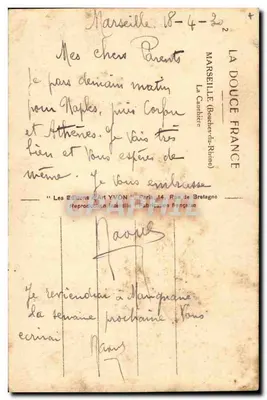 Marseille 18-4
Mes chers Parents
Je pars demain matin
pour Naples, puis Corfou
et Athènes. Je vais très
bien et vous espère de
même. Je vous embrasse
Raoul
Je reviendrai à Marignane
la semaine prochaine. Vous
écrirai
Raoul
LA DOUCE FRANCE
MARSEILLE (Bouches-du-Rhône)
La Canebière
Les Editions d'Art YVON Paris, Rue de Bretagne
Reproduction Interdite Fabrication Française